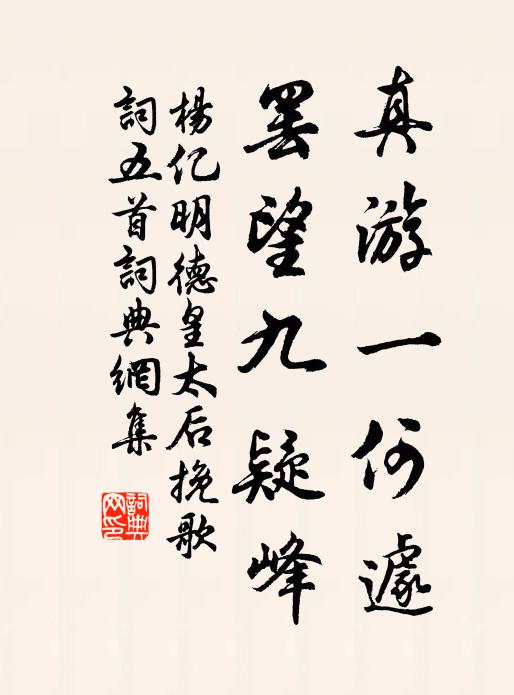 真游一何遽
罢望九疑峰
楊亿明德皇太后挽歌
詞五首詞典網集
詞典
网印